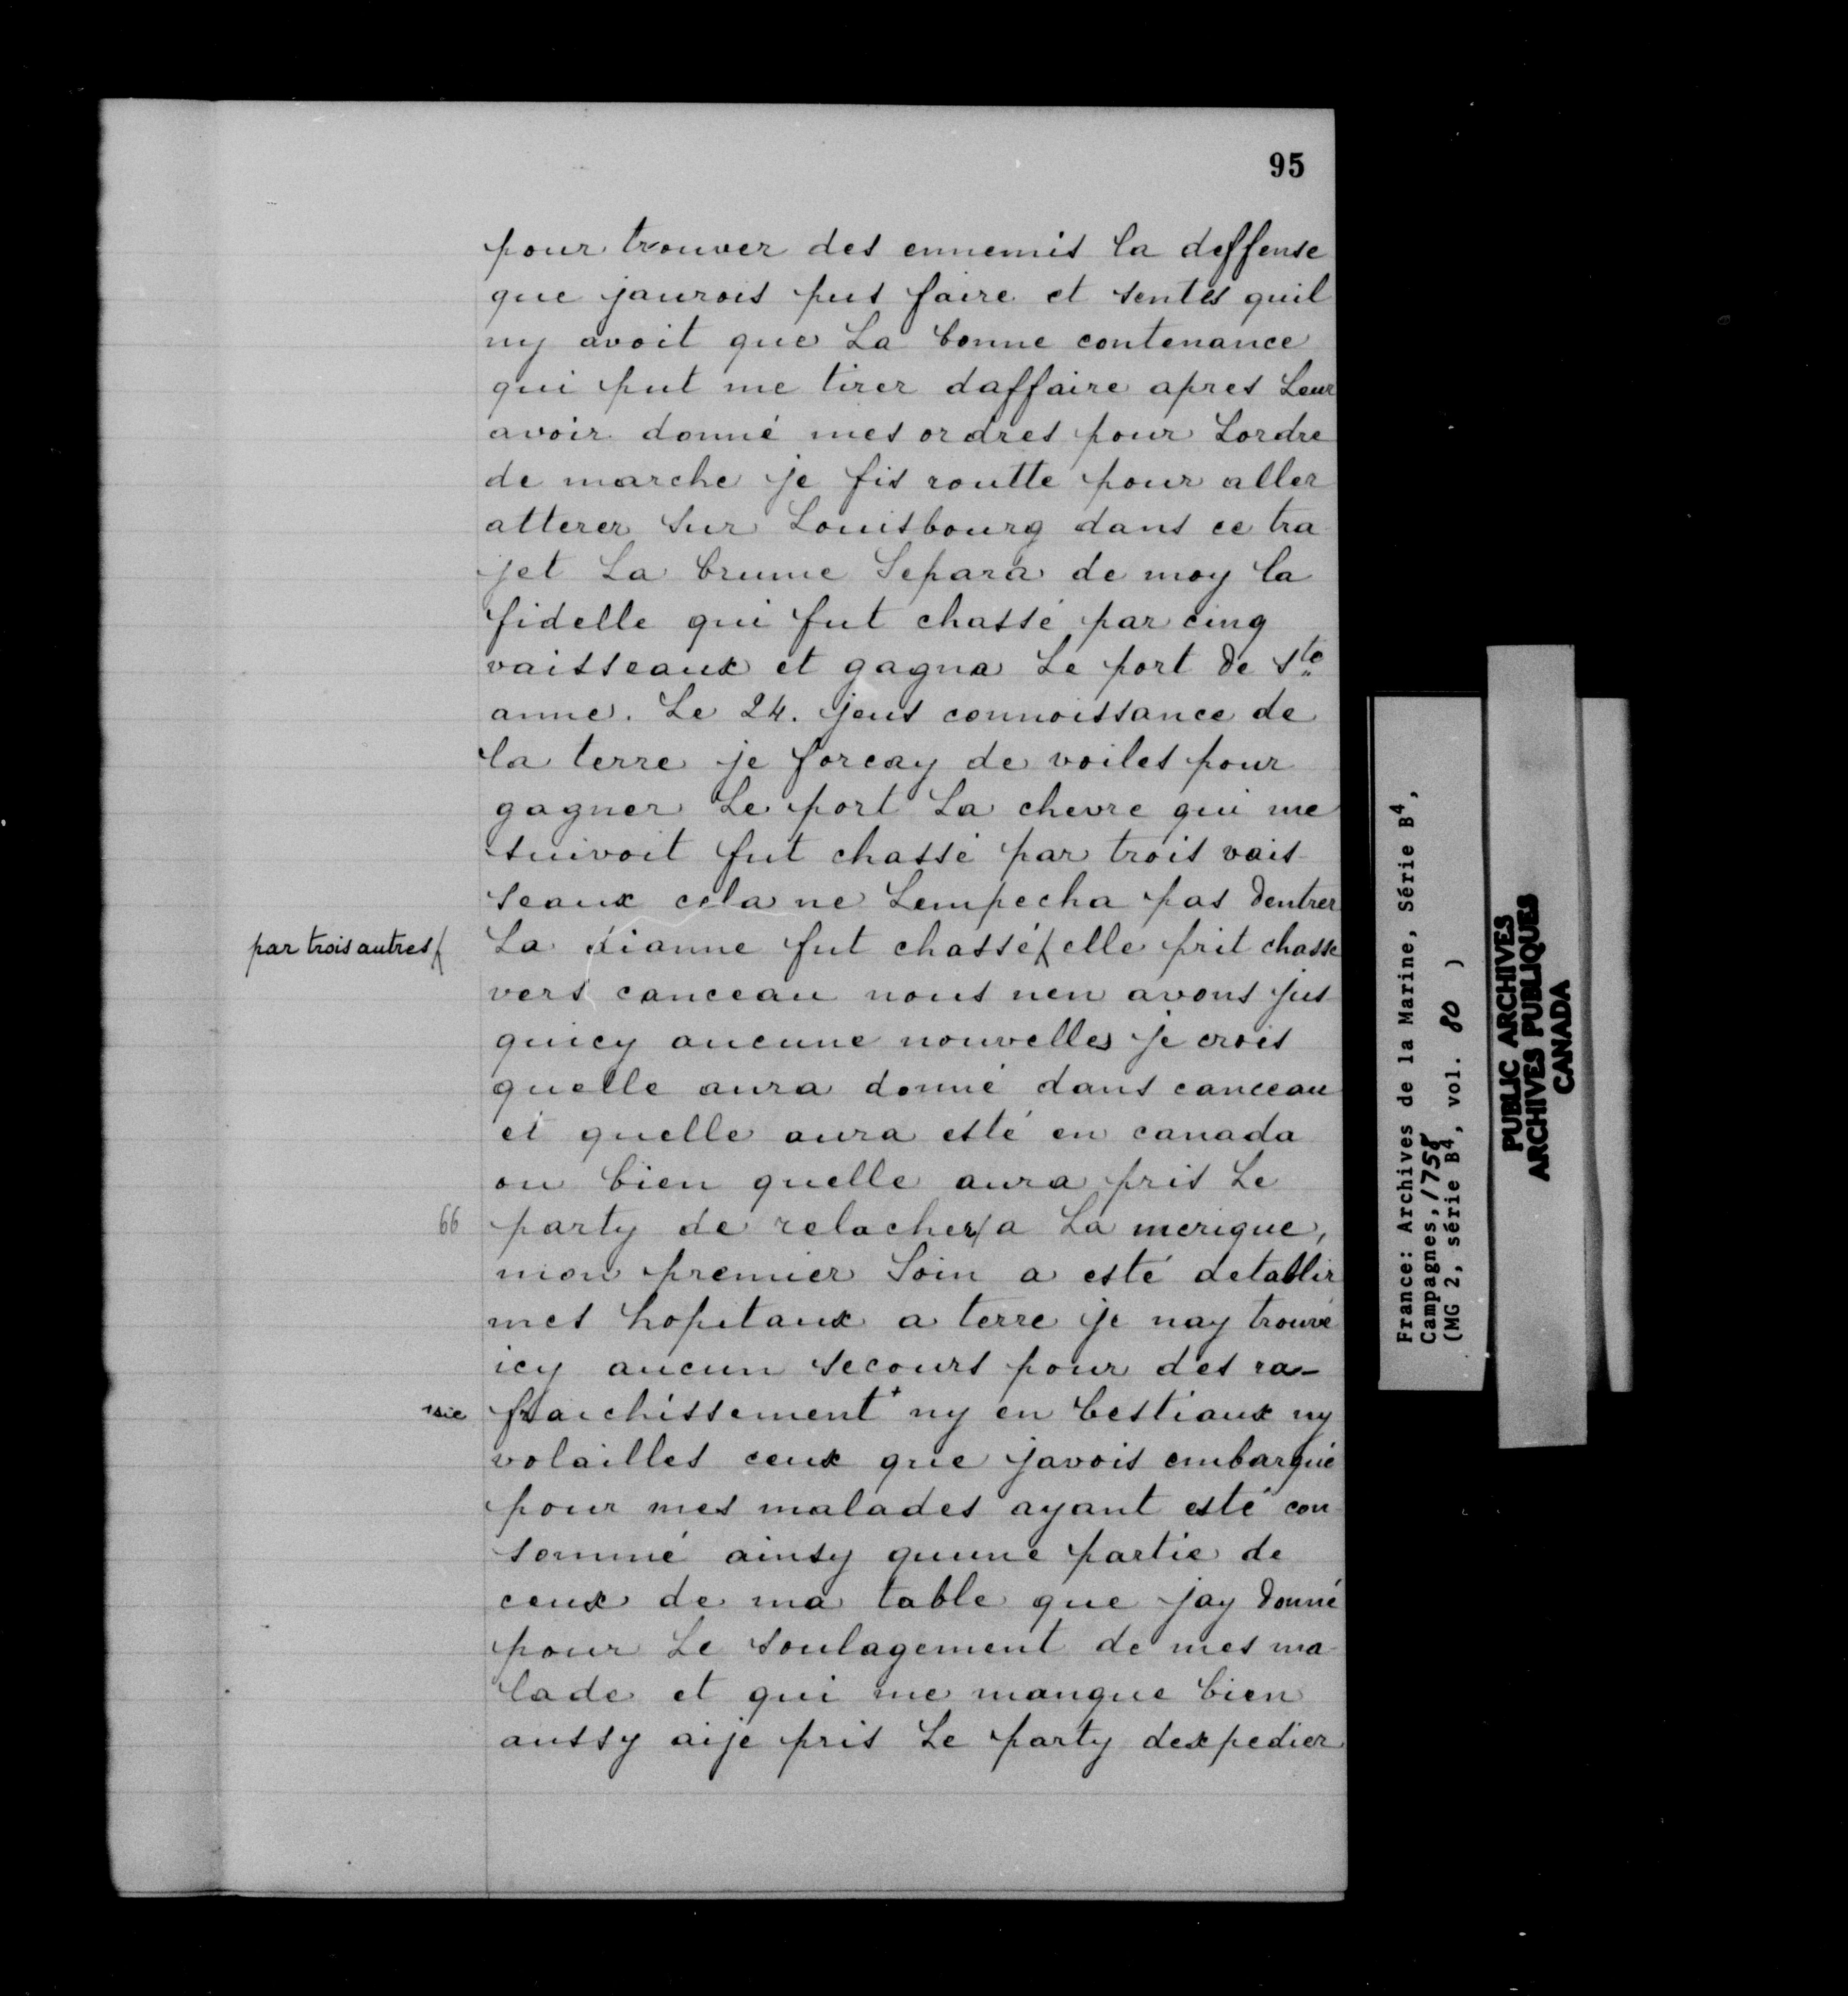 95
pour trouver des ennemis la deffense
que jaurois pus faire et sentés quil
ny avoit que La bonne contenance
qui put me tirer daffaire apres Leur
avoir donné mes ordres pour Lordre
de marche je fis routte pour aller
atterer sur Louisbourg dans ce tra
jet La brume Separa de moy la
fidelle qui fut chassé par cinq
vaisseaux et gagna Le port de Ste
anne. Le 24. jeus connoissance de
la terre je forcay de voiles pour
gagner Le port La chevre qui me
suivoit fut chassé par trois vais-
seaux cela ne Lempecha pas dentrer
par trois autres/ La dianne fut chassé/ elle prit chasse
vers canceau nous nen avons jus
quicy aucune nouvelles je crois
quelle aura donné dans canceau
et quelle aura esté en canada
ou bien quelle aura pris Le
66 party de relacher/ a La merique,
mon premier Soin a esté detablir
mes hopitaux a terre je nay trouvé
icy aucun secours pour des ra-
sic fraichissement + ny en bestiaux ny
volailles ceux que javois embarqué
pour mes malades ayant esté con
sommé ainsy quune partie de
ceux de ma table que jay donné
pour Le soulagement de mes ma
lade et qui me manque bien
aussy aije pris Le party dexpedier
France: Archives de la Marine, Série B4,
Campagnes, 1758
(MG 2, série B4, vol. 80 )
PUBLIC ARCHIVES
ARCHIVES PUBLIQUES
CANADA